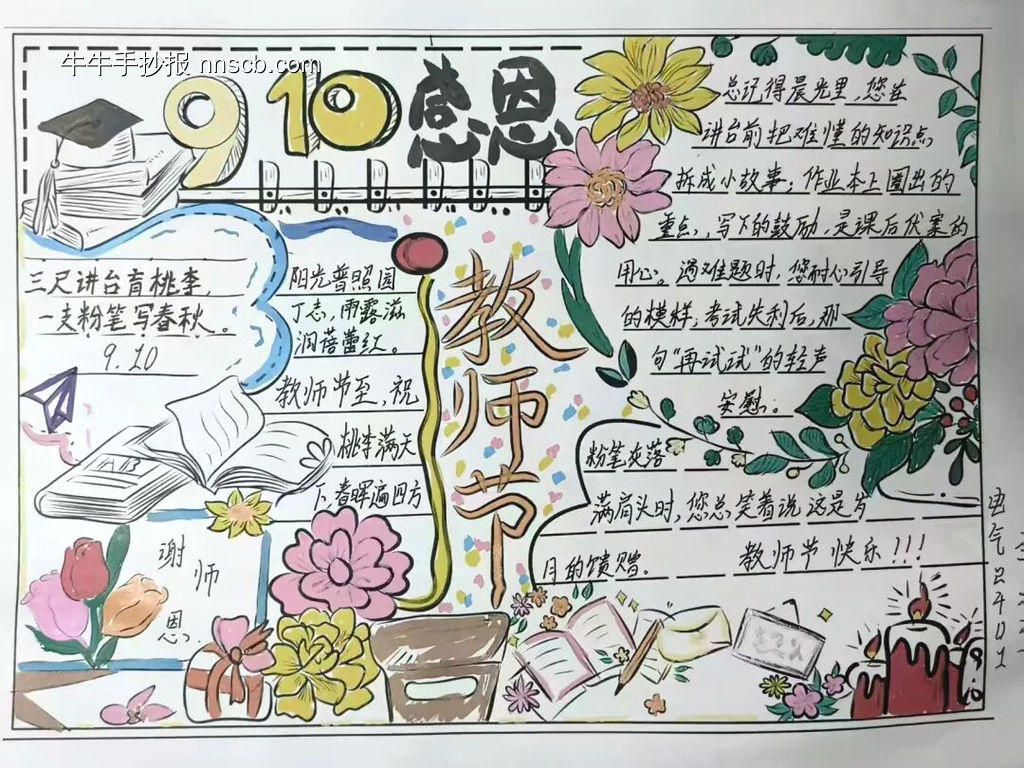 牛牛手抄报 nnscb.com
9 10 感恩
三尺讲台育桃李,
一支粉笔写春秋。
9.10
阳光普照园
丁志,雨露滋
润蓓蕾红。
教师节至,祝
桃李满天
下春晖遍四方
教师节
总记得晨光里,您在
讲台前把难懂的知识点
拆成小故事;作业本上圈出的
重点,写下的鼓励,是课后伏案的
用心。遇难题时,您耐心引导
的模样;考试失利后,那
句“再试试”的轻声
安慰。
粉笔灰落
满肩头时,您总笑着说这是岁
月的馈赠。 教师节快乐!!!
谢
师
恩
AB
9.10
电气2401